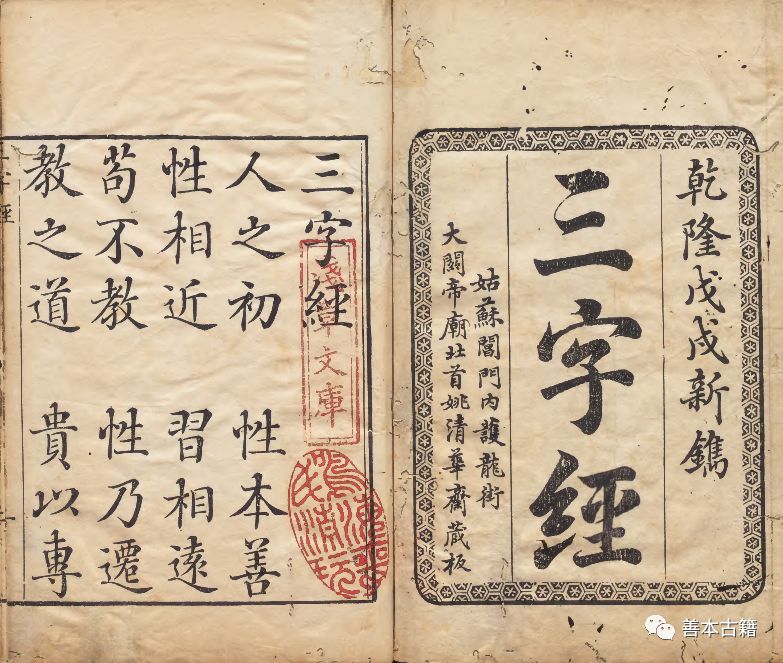 乾隆戊戌新鐫
三字經
姑蘇閶門內護龍街
大關帝廟北首姚清華齋蔵板
三字經
人之初 性本善
性相近 習相遠
苟不教 性乃遷
教之道 貴以專
淺草文庫
善本古籍